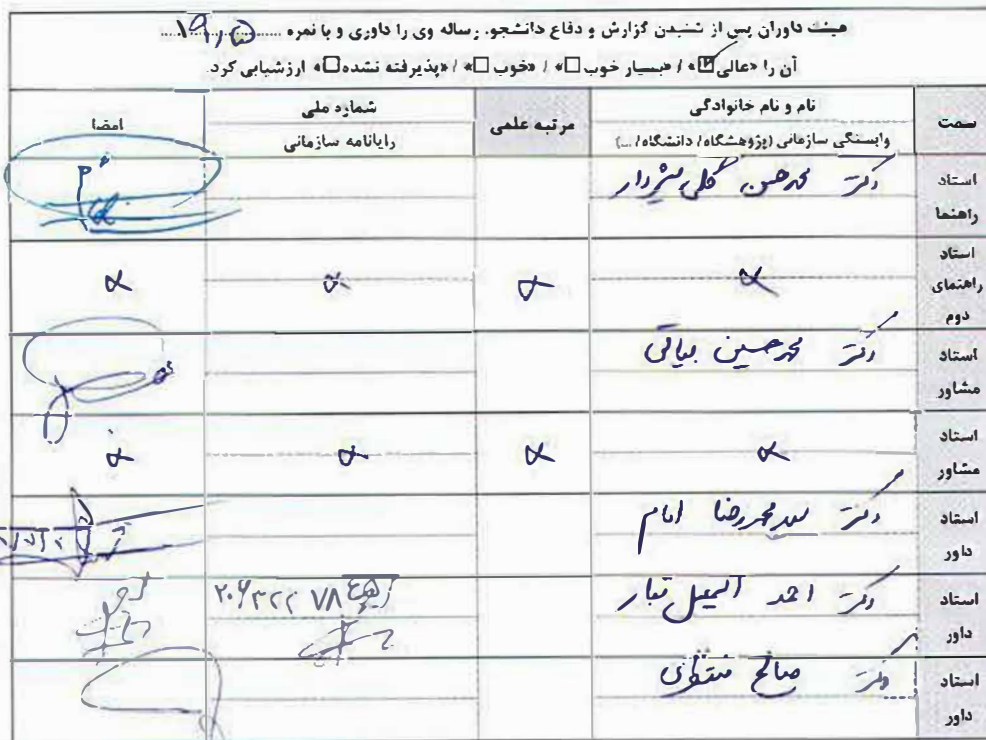 هیئت داوران پس از شنیدن گزارش و دفاع دانشجو، رساله وی را داوری و با نمره ۱۹٫۵
آن را «عالی ☑» / «بسیار خوب ☐» / «خوب ☐» / «پذیرفته نشده ☐» ارزشیابی کرد.
سمت نام و نام خانوادگی مرتبه علمی شماره ملی امضا
وابستگی سازمانی (پژوهشگاه/ دانشگاه/ ...) رایانامه سازمانی
استاد راهنما دکتر محمدحسن گلی
استاد راهنمای دوم
استاد مشاور دکتر محمدحسین بیاتی
استاد مشاور
استاد داور دکتر سیدمحمدرضا امام
استاد داور دکتر احمد اسمعیل تبار
استاد داور دکتر صالح منتظری